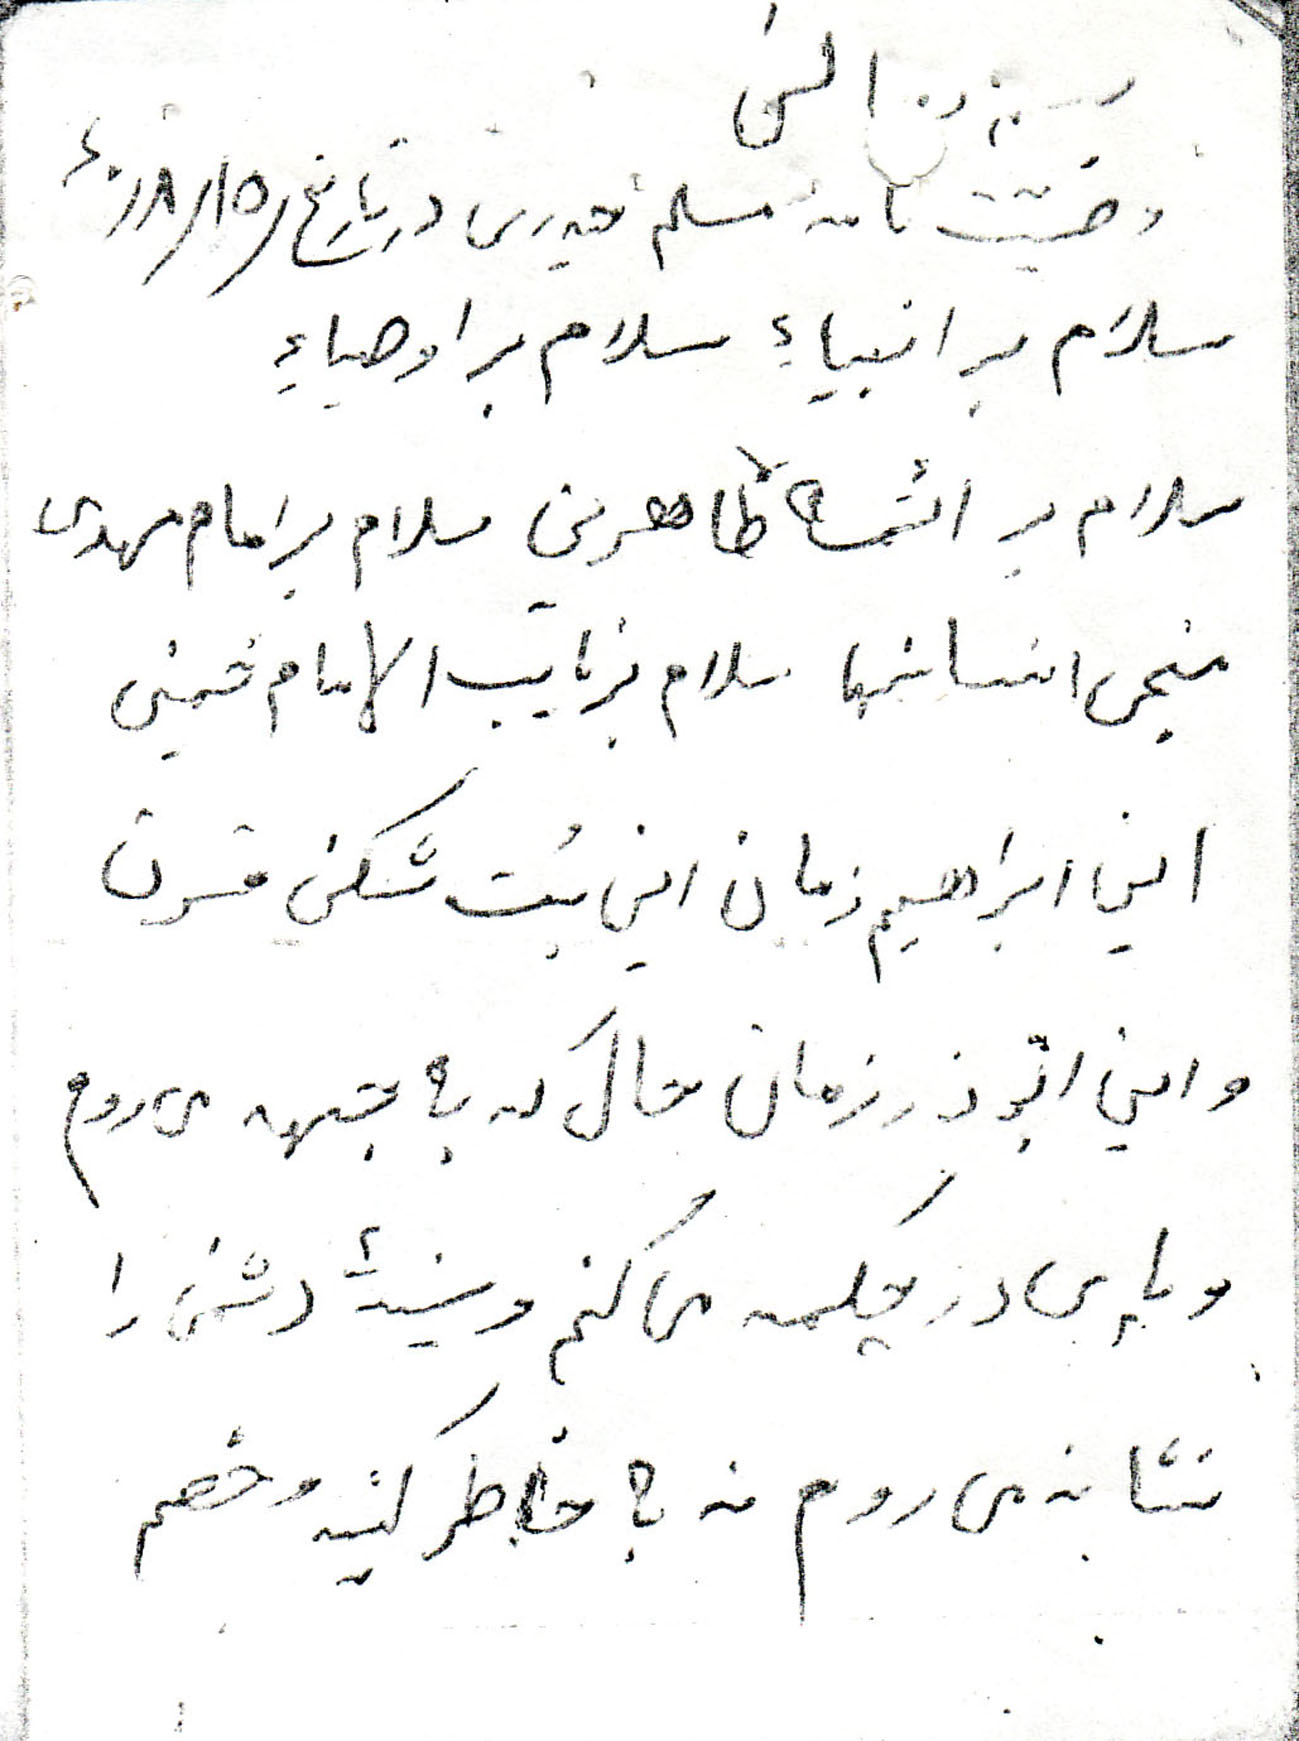 وصیت نامه مسلم حیدری در تاریخ ۶۰/۸/۱۵
سلام بر انبیاءِ سلام بر اوصیاءِ
سلام بر ائمه طاهرین سلام بر امام مهدی
منجی انسانها سلام بر نایب الامام خمینی
این ابراهیم زمان این بُت شکن قرن
و این ابوذر زمان حال که به جبهه می روم
و پای در چکمه می کنم و سینهٔ دشمن را
نشانه می روم نه به خاطر کینه و خصم